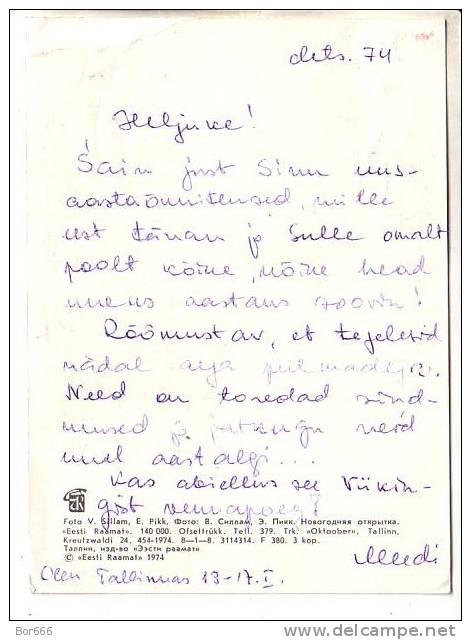 dets. 74
Heljuke!
Sain just Sinu uus-
aastaõnnitlused, mille
eest tänan ja Sulle omalt
poolt kõike, kõike head
uueus aastaus soovin!
Rõõmustav, et tegelesid
nädal aega pulmadega.
Need on toredad sünd-
mused ja jatkugu neid
uuel aastalgi...
Kas abiellus see Viikin-
gist vennapoeg?
Foto V. Sillam, E. Pikk, Фото: В. Силлам, Э. Пикк. Новогодняя открытка.
«Eesti Raamat». 140 000. Ofsettrükk. Tell. 379. Trk. «Oktoober», Tallinn,
Kreutzwaldi 24, 454-1974. 8—1—8. 3114314. F 380. 3 kop.
Таллин, изд-во «Ээсти раамат»
© «Eesti Raamat» 1974
Olen Tallinnas 13-17. I.
© Bor666
delcampe.net